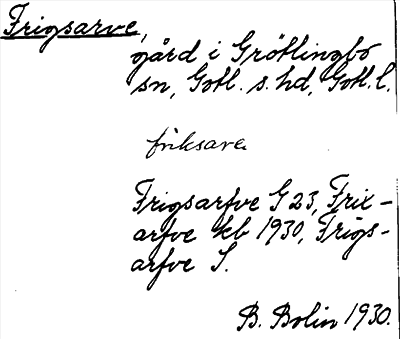 Frigsarve,
gård i Grötlingbo
sn, Gotl. s. hd, Gotl. l.
friksarve
Frigsarfve G 23, Frix-
arfve kb 1930, Frigs-
arfve S.
B. Bolin 1930.